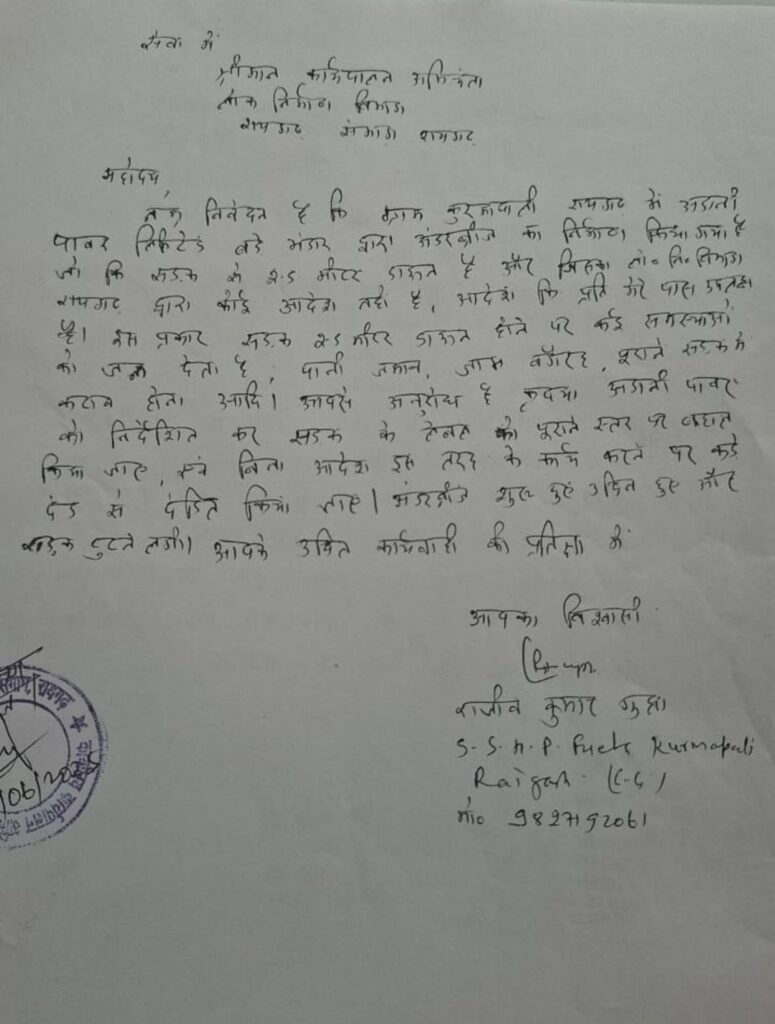 सेवा में
श्रीमान कार्यपालन अभियंता
लोक निर्माण विभाग
रायगढ़ संभाग रायगढ़
महोदय
निवेदन है कि ग्राम कुरमापाली रायगढ़ में अडानी
पावर लिमिटेड बड़े भंडार द्वारा अंडरब्रीज का निर्माण किया गया है
जो कि सड़क से 2.5 मीटर डाऊन है और जिसका लो० नि० विभाग
रायगढ़ द्वारा कोई आदेश नही है, आदेश कि प्रति मेरे पास उपलब्ध
है। इस प्रकार सड़क 2.5 मीटर डाऊन होने पर कई समस्याओं
को जन्म देता है, पानी जमाव, जाम वगैरह, पुराने सड़क में
कटाव होना आदि। आपसे अनुरोध है कृपया अडानी पावर
को निर्देशित कर सड़क के लेवल को पुराने स्तर पर बहाल
किया जाए, एवं बिना आदेश इस तरह के कार्य करने पर कड़े
दंड से दंडित किया जाए। अंडरब्रीज शुरू हुए हुए और
सड़क टुटने लगी। आपके उचित कार्यवाही की प्रतिक्षा में
आपका विश्वासी
राजीव कुमार गुप्ता
S.S.H.P. Fuels Kurmapali
Raigarh (C.G)
मो० 9827192061
रायगढ़